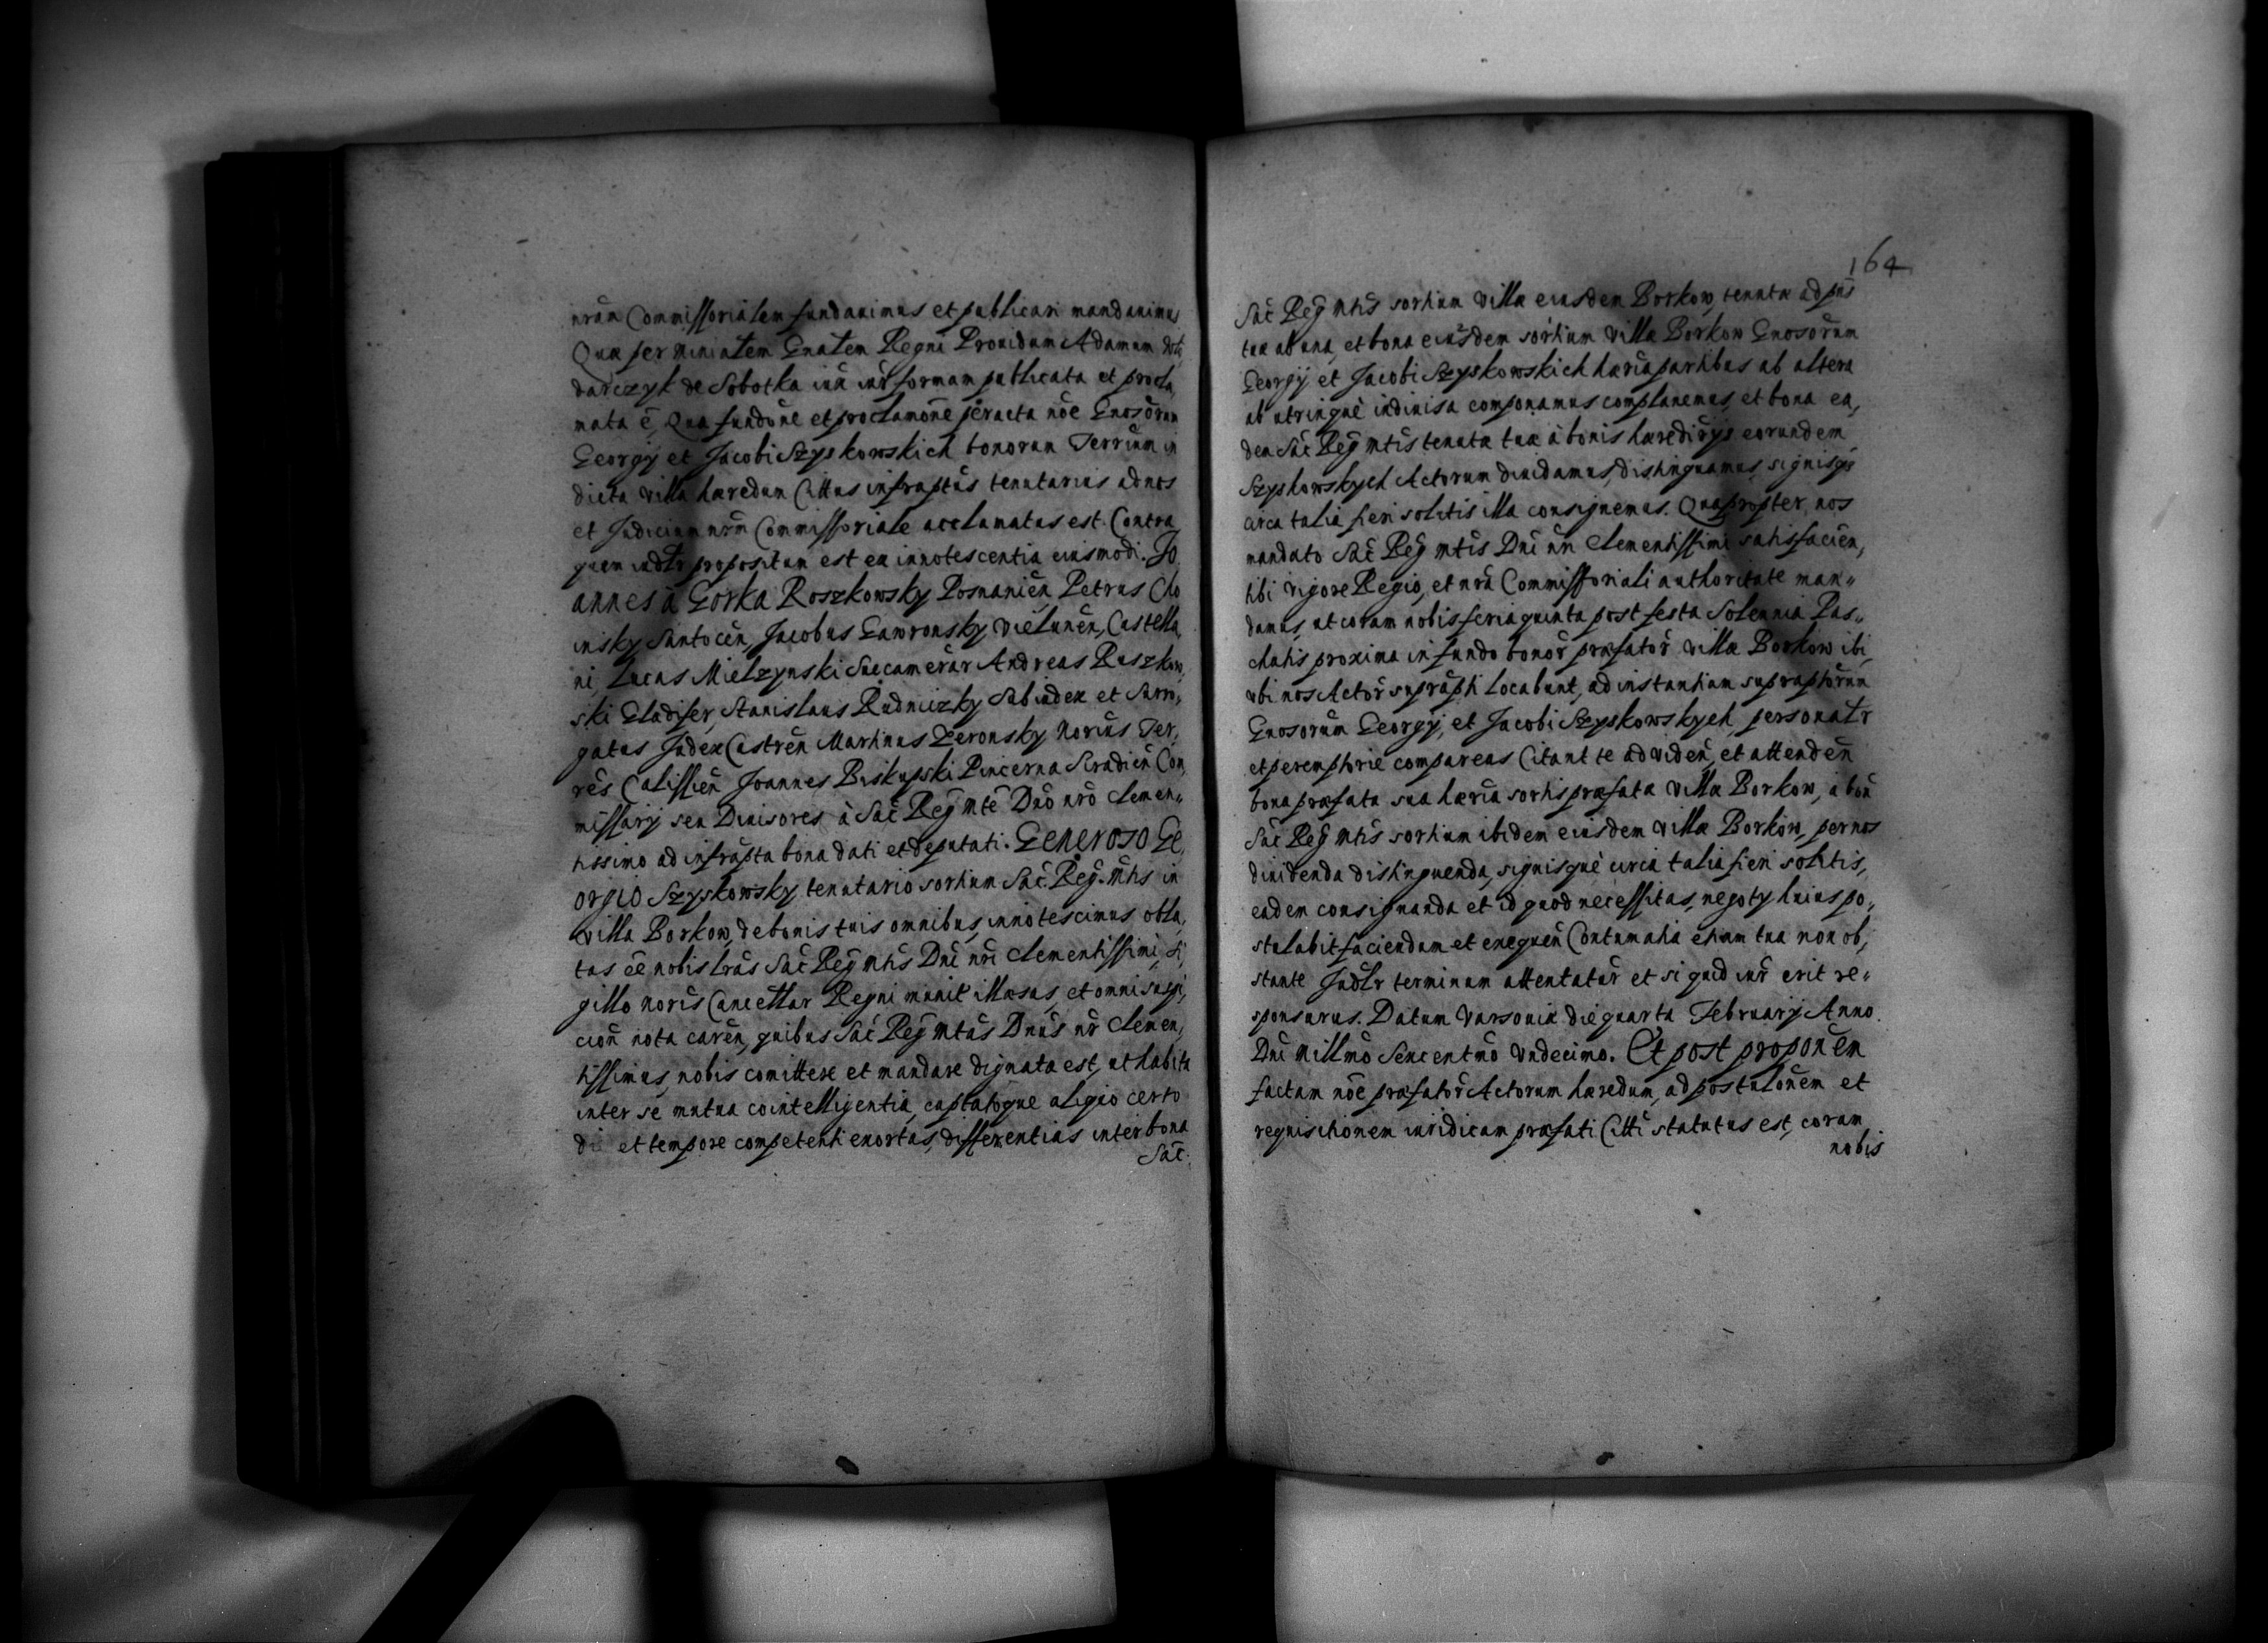 nrãm Commissorialem fundauimus et publicari mandauimus
Quæ per Ministem Gnalem Regni Prouidum Adamum
darczyk de Sobotka iux iur formam publicata et procla,
mata ẽ, Qua fundõne et proclamõne peracta nõe Gnosõrum
Georgij et Jacobi Szyskowskich bonorum Terrium in
dicta villa hæredum Cittus infraptus tenutarius ad nos
et Judicium nrm Commissoriale acclamatus est. Contra
quem iudlr propositum est ea innotescentia eiusmodi. Jo
annes à Gorka Roszkowsky Posnaniẽn, Petrus Cho
insky Santocẽn, Jacobus Gawronsky Vielunẽn, Castella,
ni, Lucas Mielzynski Succamerãr Andreas Ruszkow,
ski Gladifer, Stanislaus Rudniczky Subiudex et Surro,
gatus Judex Castrẽn Martinus Zeronsky Norius Ter,
rẽs Calissiẽn Joannes Biskupski Pincerna Siradiẽn Com
missarij seu Diuisores à Sac Reg Mte Dno nro clemen,,
tissimo ad infrapta bona dati et deputati. Generoso Ge,
orgio Szyskowsky tenutario sortium Sac. Reg. Mtis in
villa Borkow, de bonis tuis omnibus, innotescimus obla,
tas ẽe nobis lrãs Sac Reg Mtis Dni nri clementissimi, si,
gillo noris Cancellar Regni munit illæsas, et omni suspi,
ciõn nota carẽn, quibus Sac Reg Mtas Dnus nr clemen,
tissimus, nobis comittere et mandare dignata est, ut habita
inter se mutua cointelligentia, captatoque aliqio certo
die et tempore competenti exortas, differentias inter bona
Sac.
164
Sac Reg Mtis sortium villæ eiusdem Borkow, tenutæ ad pns
tuæ ab una, et bona eiusdem sortium villæ Borkow Gnosorum
Georgij et Jacobi Szyskowskich hæria partibus ab altera
ab utrinquè indiuisa componamus complanemus, et bona ea,
dem Sac Reg Mtis tenutæ tuæ à bonis hæreditrijs eorundem
Szyskowskych Actorum diuidamus, distinguamus, signisqz
circa talia fieri solitis illa consignemus. Quapropter nos
mandato Sac Reg Mtis Dni nri clementissimi satisfaciẽn,
tibi vigore Regio, et nrã Commissoriali authoritate man,,
damus, ut coram nobis feria quinta post festa Solennia Pas,,
chatis proxima in fundo bonor præfator villæ Borkow ibi,
ubi nos Actor supraptti locabunt, ad instantiam supraptorum
Gnosorum Georgij, et Jacobi Szyskowskych, personalr
et peremptorie compareas Citant te ad videñ, et attendeñ
bona præfata sua hæria sortis præfatæ villæ Borkow, à boñ
Sac Reg Mtis sortium ibidem eiusdem villæ Borkow, per nos
diuidenda distinguenda, signisquè circa talia fieri solitis,
eadem consignanda et id quod necessitas, negotij huius po,,
stulabit faciendum et exequẽn Contumatia etiam tua non ob,
stante Judlr terminum attentatur et si quid iur erit re,,
sponsurus. Datum Varsouiæ die quarta Februarij Anno
Dni Millmõ Sexcentmõ Vndecimo. Et post proponem
factam nõe præfator Actorum hæredum, ad postulõnem et
requisitionem iuridicam præfati Citti statutus est, coram
nobis